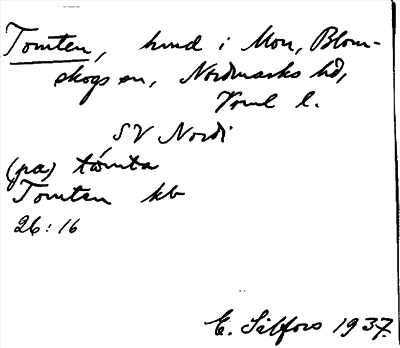 Tomten, hmd i Mon, Blom-
skogs sn, Nordmarks hd,
Vrml l.
SV Nordi
(pa) tómta
Tomten kb
26:16
E. Sälfors 1937.